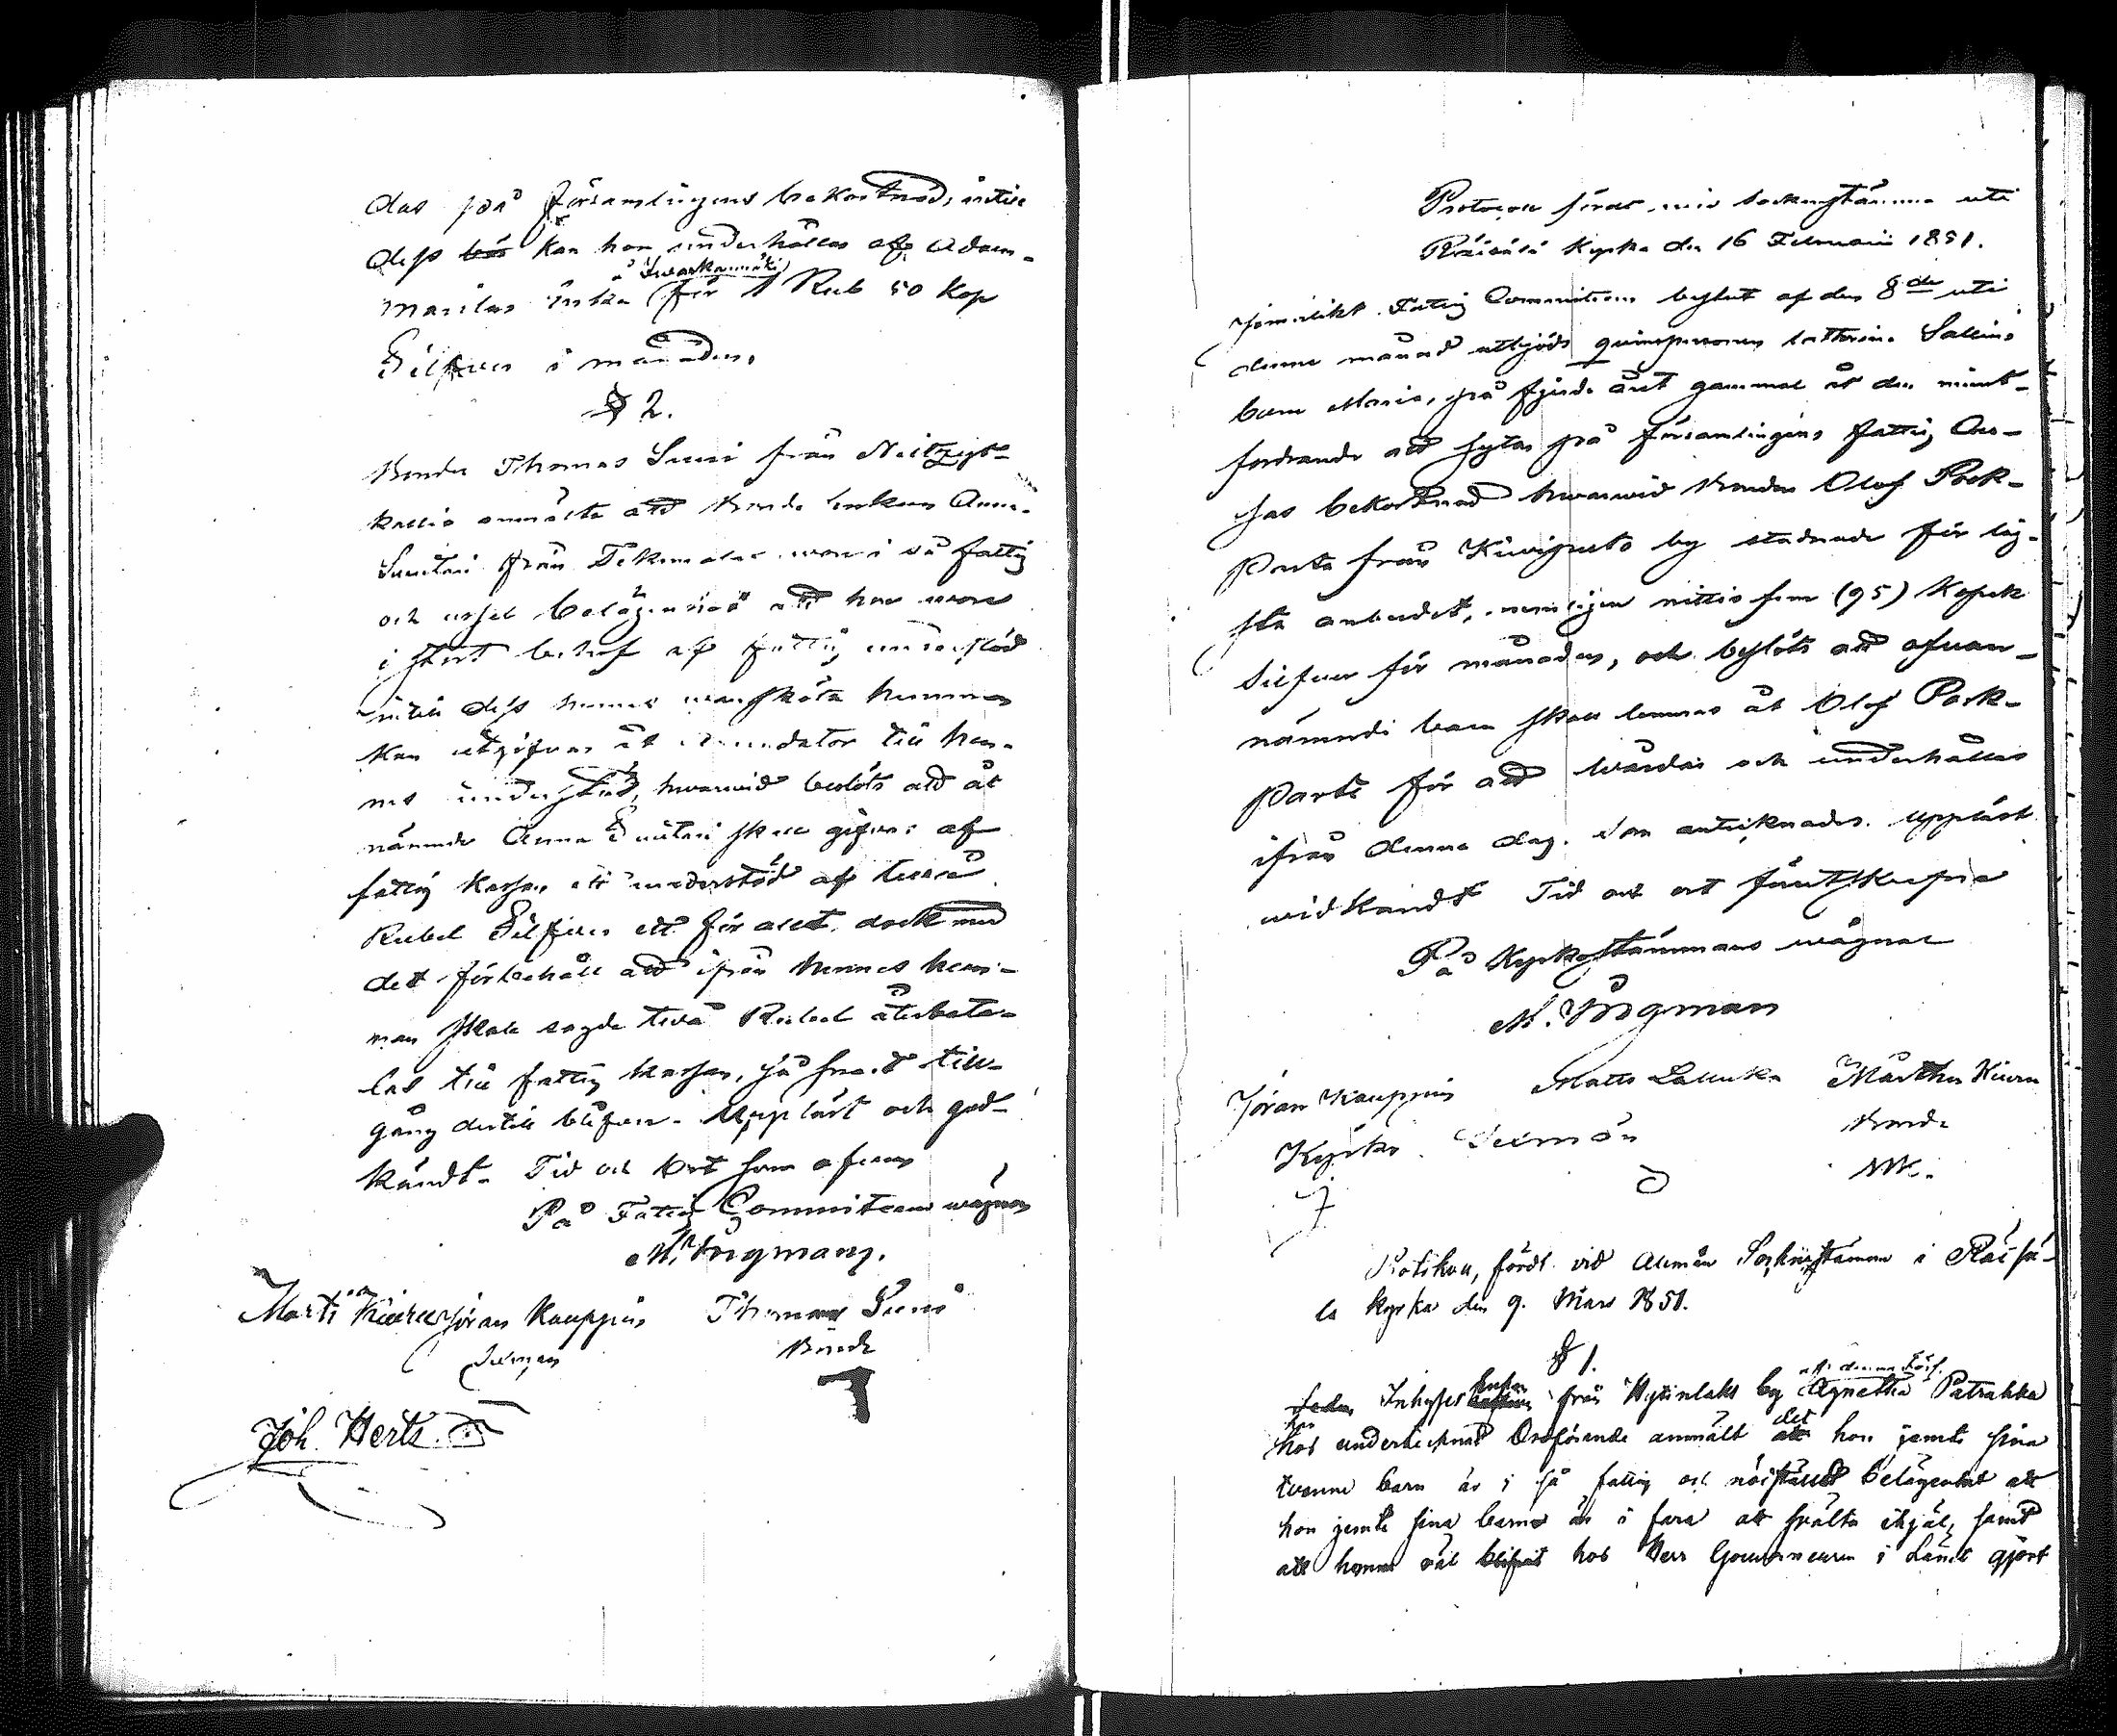 das på församlingens bekostnad, intill
dess kan hon underhållas af Adam
Manilas Enka för 1 Rub 50 Kop
Silfver i månaden.
§ 2.
Bonden Thomas Suni från
kallio anmälte att Bonde Enkan Anna
från wore i så fattig
och ussel belägenhet att hon wore
i stort behof af fattig understöd
intill dess hennes wanskötta hemman
kan utgifvas åt till hen-
nes understöd, hwarwid beslöts att åt
nämnde Anna skall gifvas af
fattig kassan ett understöd af twå
Rubel Silfver ett för allt, dock med
det förbehåll att ifrån hennes hem-
man skall sagde twå Rubel återbeta-
las till fattig kassan, så snart till-
gång dertill blifver. Uppläst och god-
kändt. Tid och Ort som ofvan
På Fattig Committeens wägnar
M. Wogman.
Martti Kiuru Jöran Kauppin Thomas Suni
Bonde
Joh. Herts
Protocoll fördt wid Sockenstämma uti
Räisälä Kyrka den 16 Februarii 1851.
Jemlikt Fattig Committeens beslut af den 8de uti
denne månad utbjöds qvinspersonen Catharina Sallins
barn Maria, på fjerde året gammal åt den minst-
fordrande att skötas på församlingens fattig Cas-
sas bekostnad hwarwid Bonden Olof Pork-
Partti från by stadnade för läg-
sta anbudet, nemligen nittio fem (95) Kopek
Silfver för månaden, och beslöts att ofvan-
nämnde barn skall lemnas åt Olof Pork-
Partti för att wårdas och underhållas
ifrån denne dag. Som antecknades. Uppläst
widkändt Tid och ort förutskrefne
På Kyrkostämmans wägnar
M. Wogman
Jöran Kauppin Matts Lallukka Mårthen Kiuru
Bonde
MK.
Protokoll, fördt vid Allmän Sockenstämma i Räisä-
lä kyrka den 9. Mars 1851.
§ 1.
Inhyses hustrun från by Agnetha Patrakka
har
hos undertecknad Ordförande anmält det hon jemte sina
tvenne barn är i så fattig och nödställd belägenhet att
hon jemte sina barn är i fara att svälta ihjäl, samt
att honom väl blifvit hos Herr Gouverneuren i Länet gjort